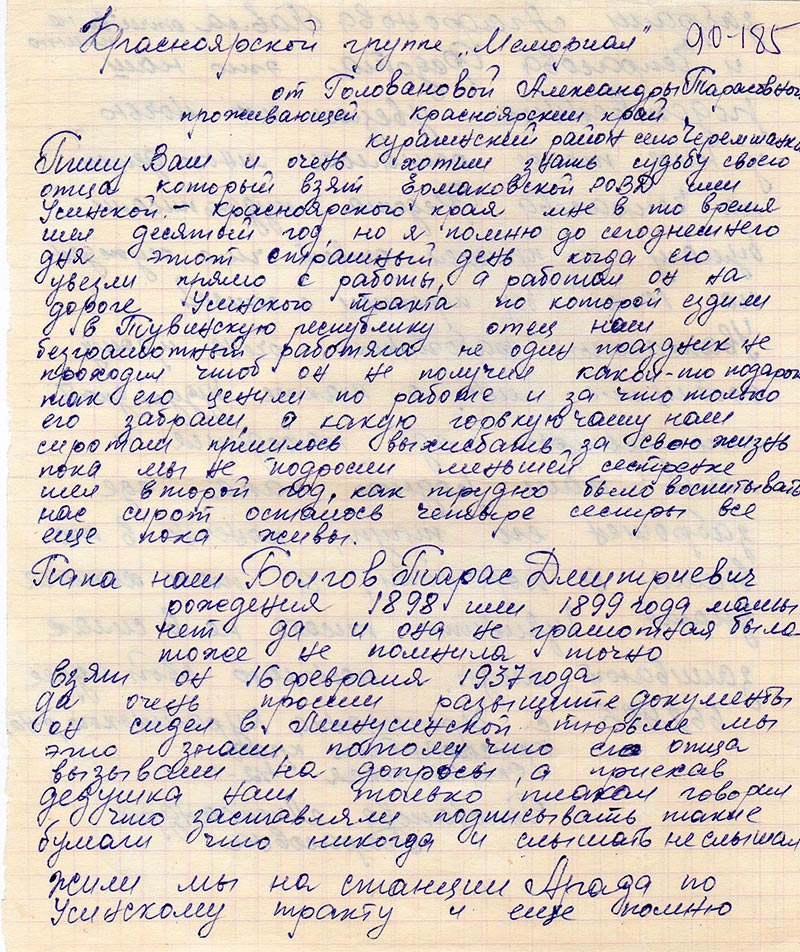 Красноярской группе „Мемориал" 90-185
от Головановой Александры Тарасовной
проживающей Красноярский край
курагинский район село Черемшанка
Пишу Вам и очень хотим знать судьбу своего
отца который взят Ермаковской РОВД или
Усинской. – Красноярского края мне в то время
шел десятый год, но я помню до сегоднешнего
дня этот страшный день когда его
увезли прямо с работы, а работал он на
дороге Усинского тракта по которой ездили
в Тувинскую республику отец наш
безграмотный работяга не один праздник не
проходил чтоб он не получил какой-то подарок
так его ценили по работе и за что только
его забрали, о какую горькую чашу нам
сиротам пришлось выхлебать за свою жизнь
пока мы не подросли меньшей сестренке
шел второй год, как трудно было воспитывать
нас сирот осталось четыре сестры все
еще пока живы.
Папа наш Болгов Тарас Дмитриевич
рождения 1898 или 1899 года мамы
нет да и она не грамотная была
тоже не помнила точно
взят он 16 февраля 1937 года
да очень просим разыщите документы
он сидел в Минусинской тюрьме мы
это знали, потому что отца
вызывали на допросы, а приехав
дедушка наш только плакал говорил
что заставляли подписывать такие
бумаги что никогда и слышать не слышал
жили мы на станции Арада по
Усинскому тракту и еще помню